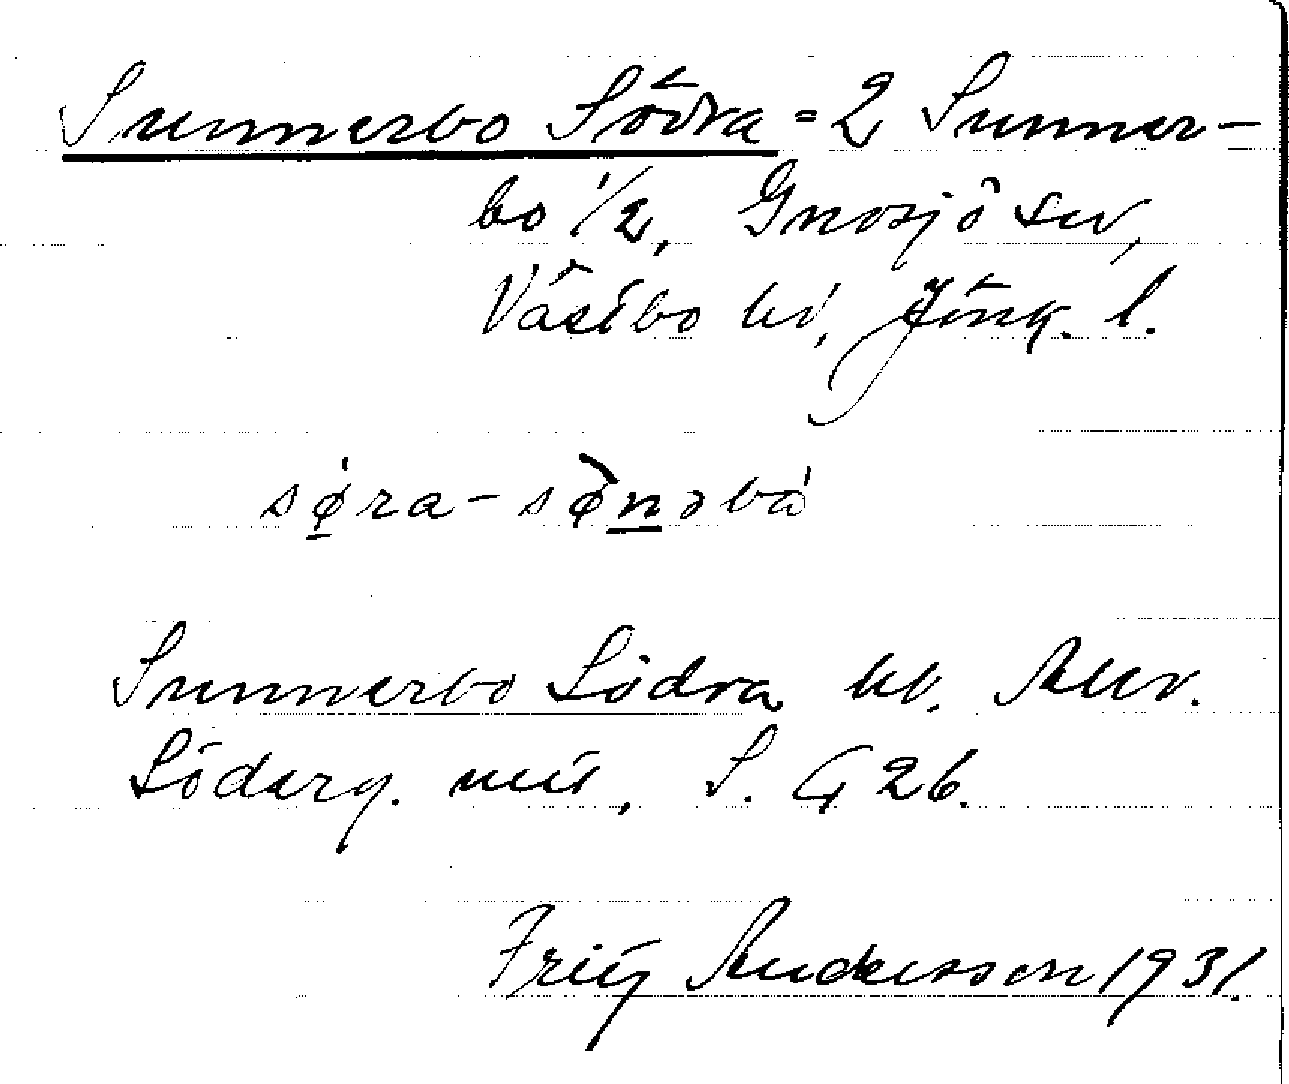 Sunnerbo Södra = 2 Sunner-
bo 1/2, Gnosjö sn,
Västbo hd, Jönk. l.
sǿ̱ra-sø̀ṉəbá
Sunnerbo Södra hd. Allv.
Söderg. mit, S. G 26.
Andersson 1931.